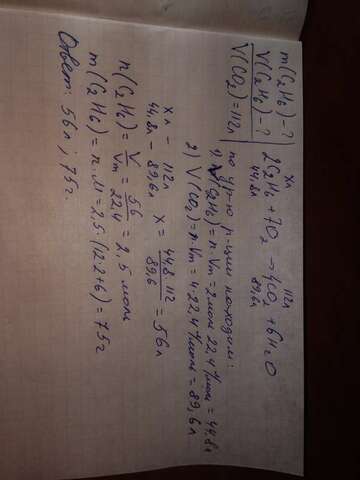 m(C₂H₆)-?
V(C₂H₆)-?
V(CO₂)=112л
хл 112л
2C₂H₆ + 7O₂ → 4CO₂ + 6H₂O
44,8л 89,6л
по ур-ю р-ции находим:
1) V(C₂H₆)=n·Vm=2моль·22,4л/моль=44,8л
2) V(CO₂)=n·Vm=4·22,4л/моль=89,6л
хл - 112л
44,8л - 89,6л
x = 44,8·112/89,6 = 56л
n(C₂H₆)= V/Vm = 56/22,4 = 2,5 моль
m(C₂H₆)=n·M=2,5·(12·2+6)=75г
Ответ: 56л; 75г.